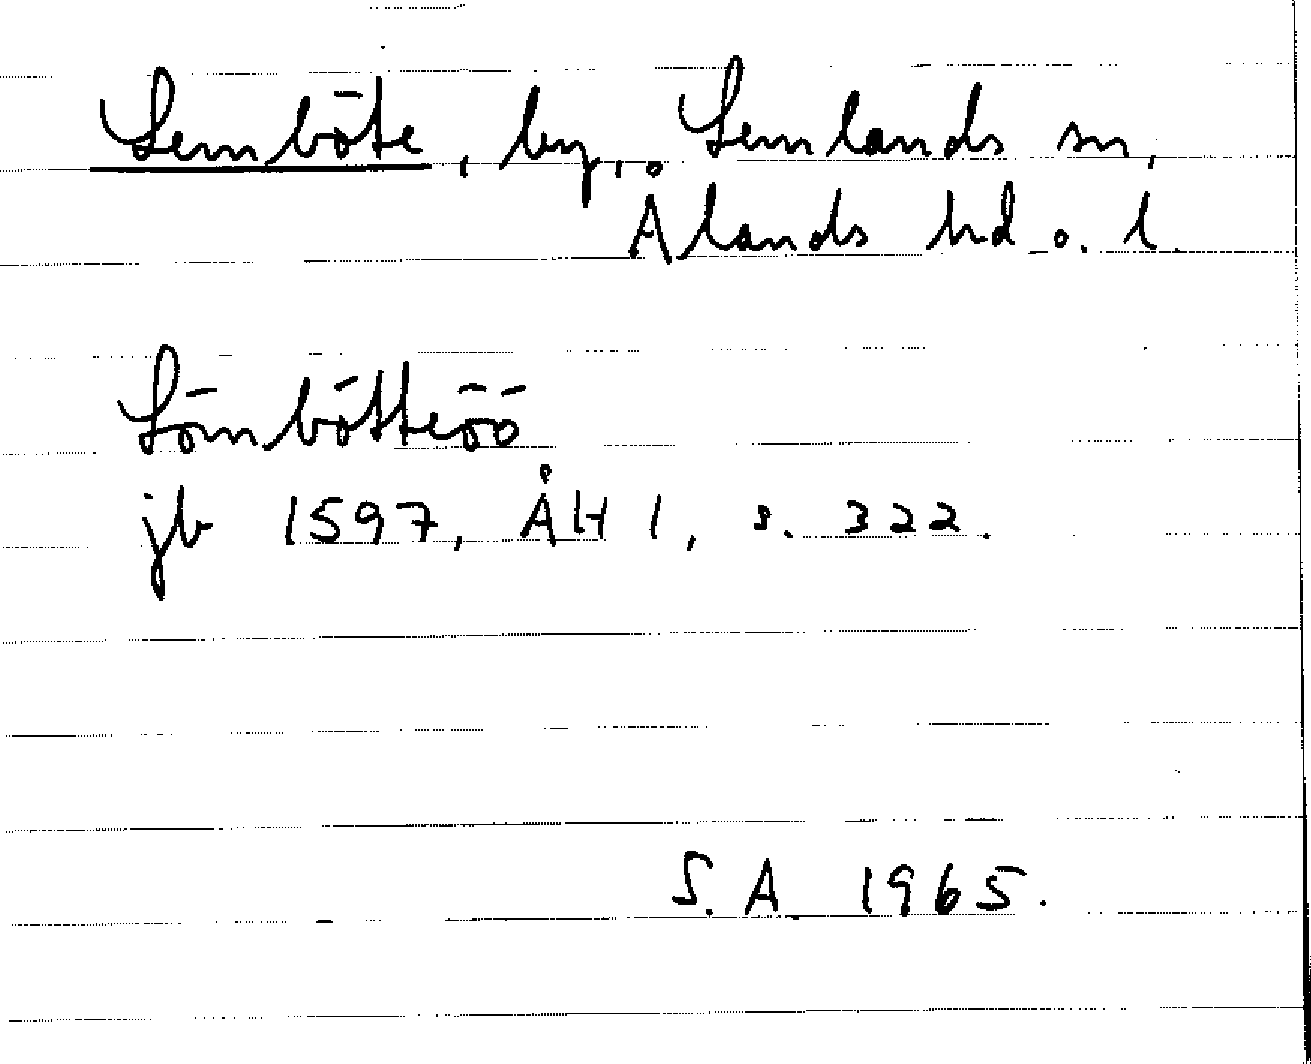 Lemböte, by, Lemlands sn,
Ålands hd o. l.
Lömbötteöö
jb 1597, ÅH 1, s. 322.
S.A. 1965.